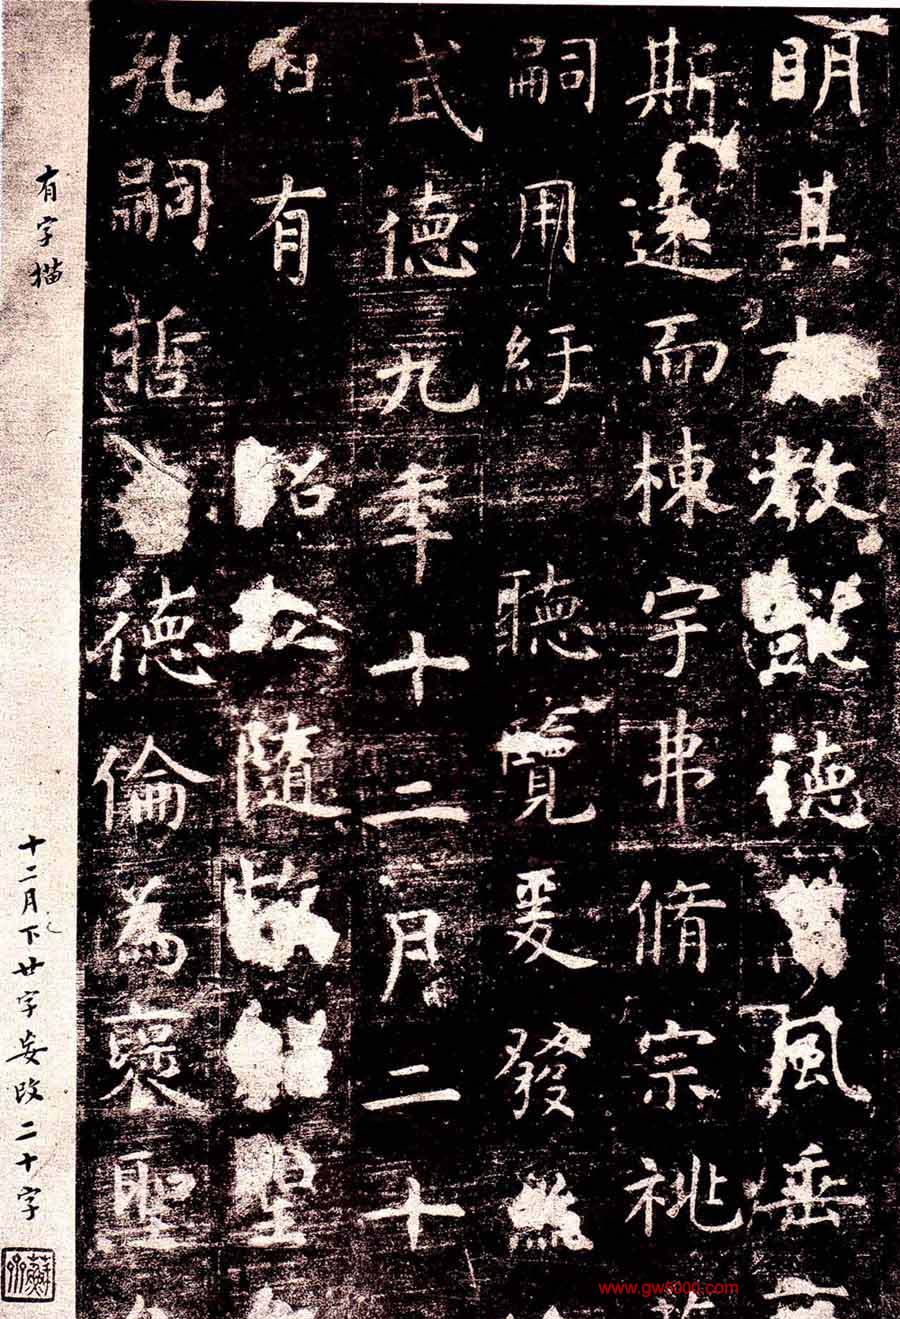 明其大教懿德風垂
斯遠而棟宇弗脩宗祧
嗣用紆聽覽爰發絲
武德九年十二月二十
有詔立隨故紹聖
孔嗣哲子德倫為褒聖
有字描
十二月下廿字妄改二十字
www.gw5000.com